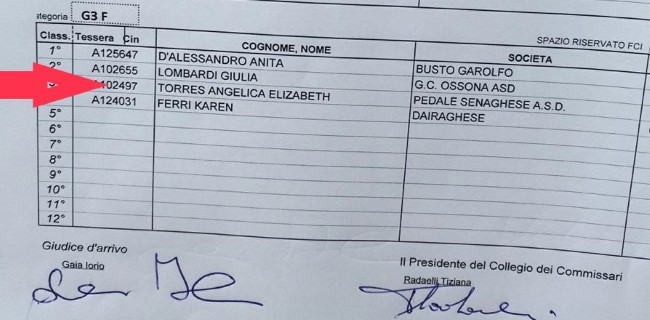 ategoria G3 F
SPAZIO RISERVATO FCI
Class. Tessera Cin COGNOME, NOME SOCIETA
1° A125647 D'ALESSANDRO ANITA BUSTO GAROLFO
2° A102655 LOMBARDI GIULIA G.C. OSSONA ASD
3° A102497 TORRES ANGELICA ELIZABETH PEDALE SENAGHESE A.S.D.
A124031 FERRI KAREN DAIRAGHESE
5°
6°
7°
8°
9°
10°
11°
12°
Giudice d'arrivo
Gaia Iorio
Il Presidente del Collegio dei Commissari
Radaelli Tiziana